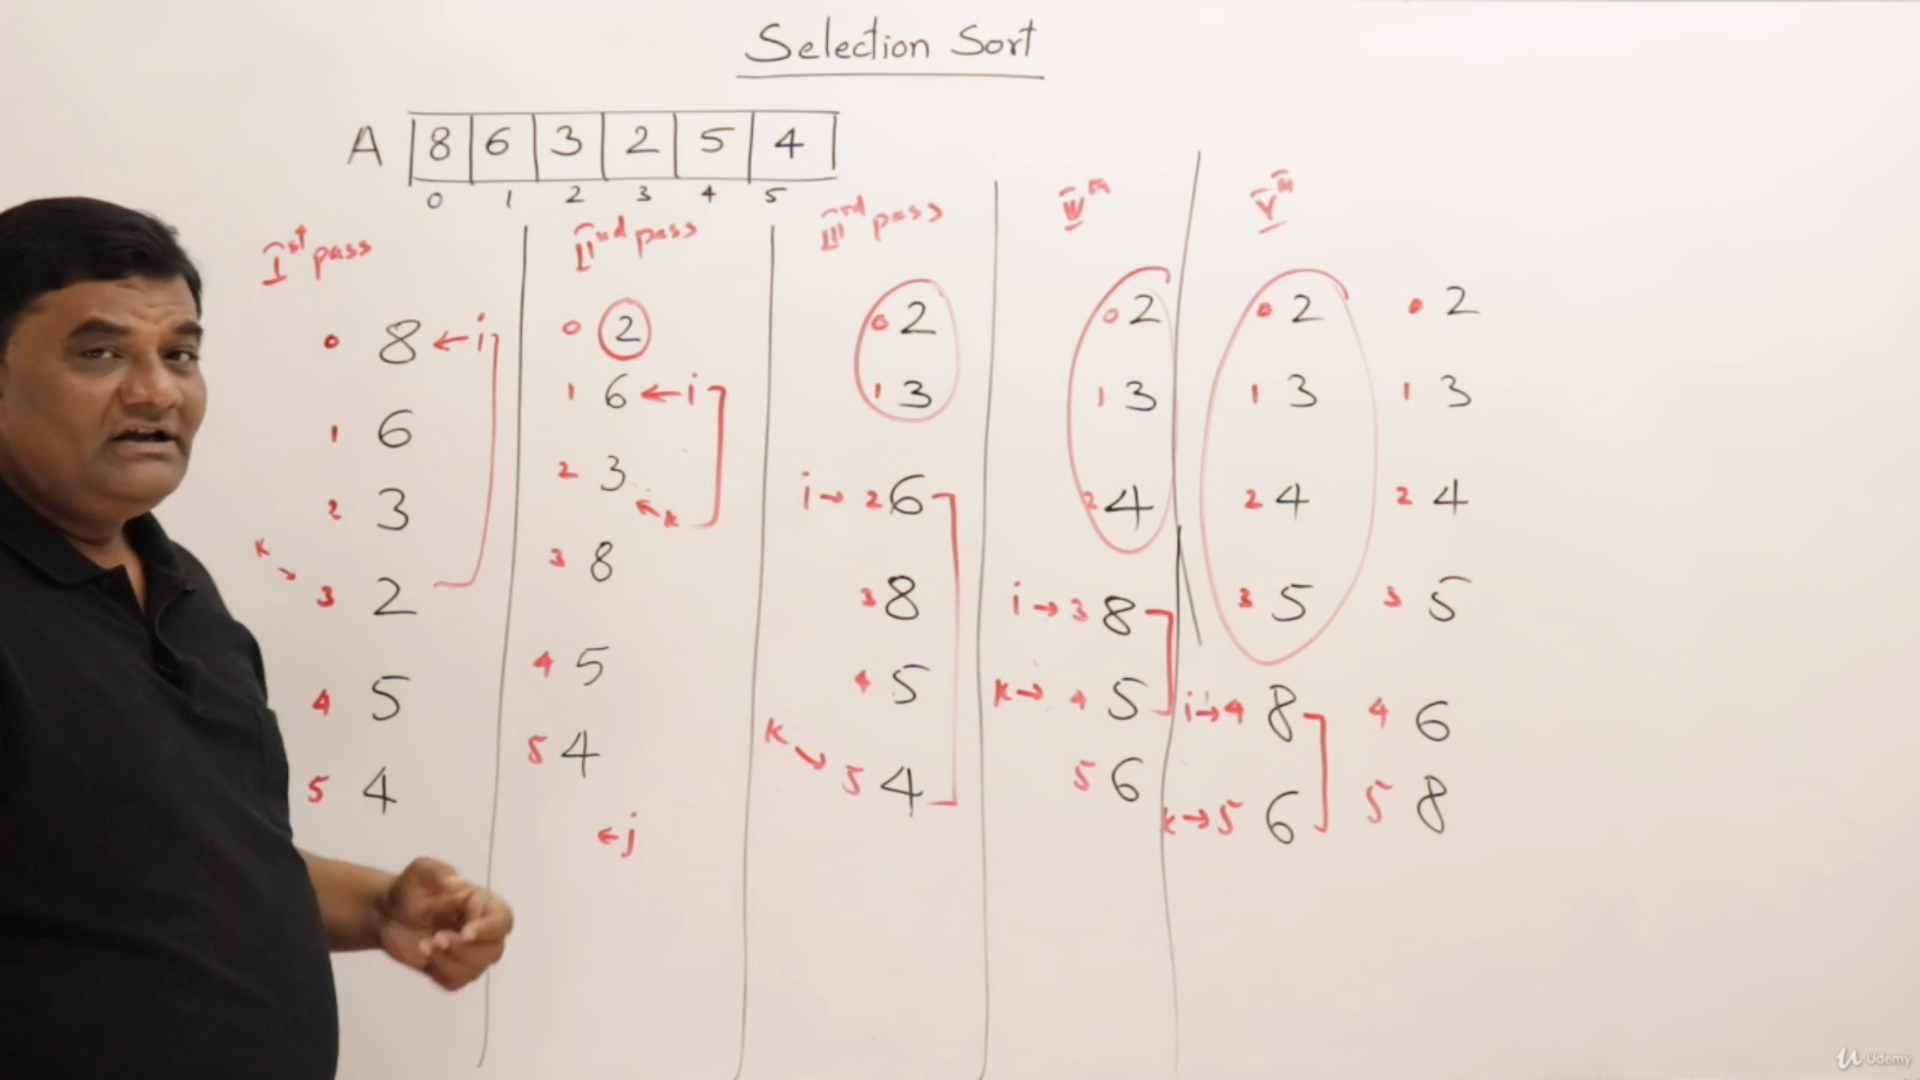 Selection Sort
A 8 6 3 2 5 4
0 1 2 3 4 5
Ist pass
0 8 ← i
1 6
2 3
k → 3 2
4 5
5 4
IInd pass
0 2
1 6 ← i
2 3 ← k
3 8
4 5
5 4
← j
IIIrd pass
0 2
1 3
i → 2 6
3 8
4 5
k → 5 4
IVth
0 2
1 3
2 4
i → 3 8
k → 4 5
5 6
Vth
0 2
1 3
2 4
3 5
i → 4 8
k → 5 6
0 2
1 3
2 4
3 5
4 6
5 8
Udemy